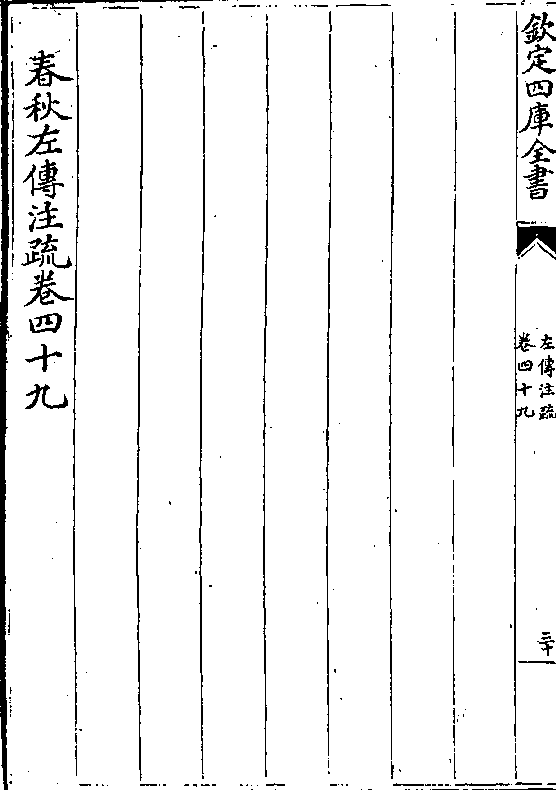 欽定四庫全書
左傳注疏
卷四十九
三十
春秋左傳注疏卷四十九